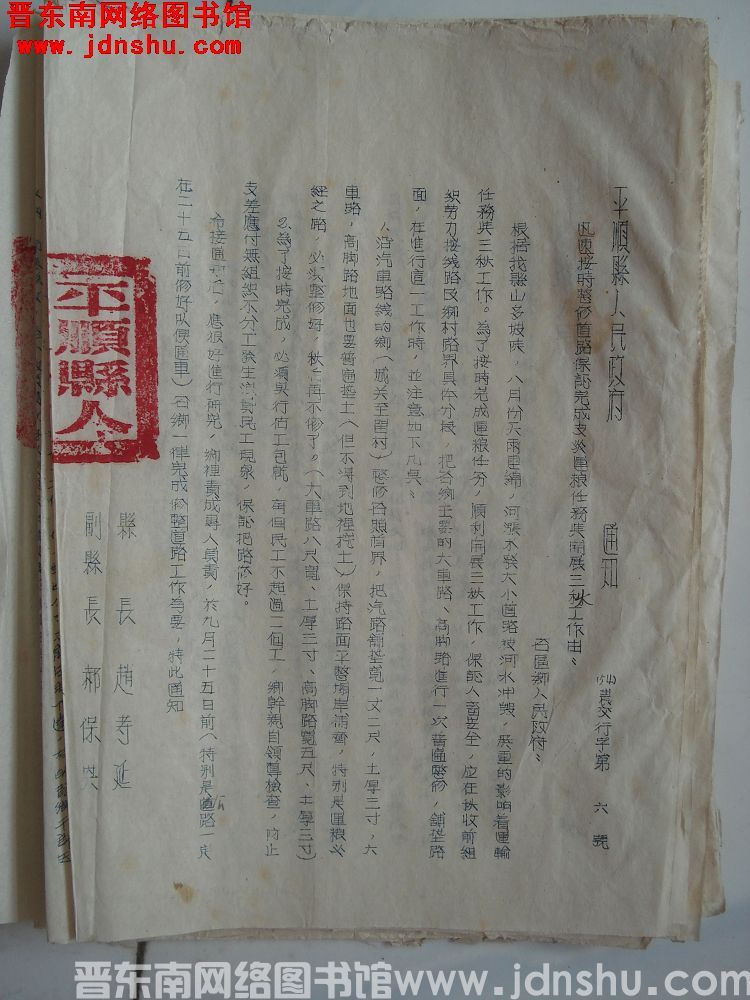 晋东南网络图书馆
www.jdnshu.com
平順縣人民政府 通知
農交行字第六號
迅速按時整修道路保証完成支炎運粮任務與開展三秋工作由：
各區鄉人民政府：
根据我縣山多坡陡，八月份天雨連綿，河漲水發大小道路被河水冲毀，嚴重的影响着運輸
任務與三秋工作。為了按時完成運粮任务，順利開展三秋工作，保証人畜安全，应在秋收前組
織劳力按线路及鄉村路界具体分段，把各鄉主要的大車路、高脚路進行一次普遍整修，鋪垫路
面，在進行這一工作時，並注意如下几点：
1.沿汽車路线的鄉（城关至 村）整修各照前界，把汽路鋪垫宽一丈二尺，土厚三寸，大
車路，高脚路地面也要普遍垫土（但不得到地裡挖土）保持路面平整 ，特别是運粮必
經之路，必須整修好，秋后再不修了。（大車路八尺寬、土厚三寸、高脚路寬五尺、土厚三寸）
2.為了按時完成，必須实行佔工包乾，每個民工不超過二個工，鄉幹親自領導檢查，防止
支差應付無組織不分工發生浪費民工現象，保証把路修好。
各接通知后，應很好進行研究，鄉裡責成專人負責，於九月二十五日前（特别是 道路一定
在二十五日前修好以便通車）各鄉一律完成修整道路工作為要，特此通知
縣長 趙孝延
副縣長 郝保
平順縣人
晋东南网络图书馆www.jdnshu.com